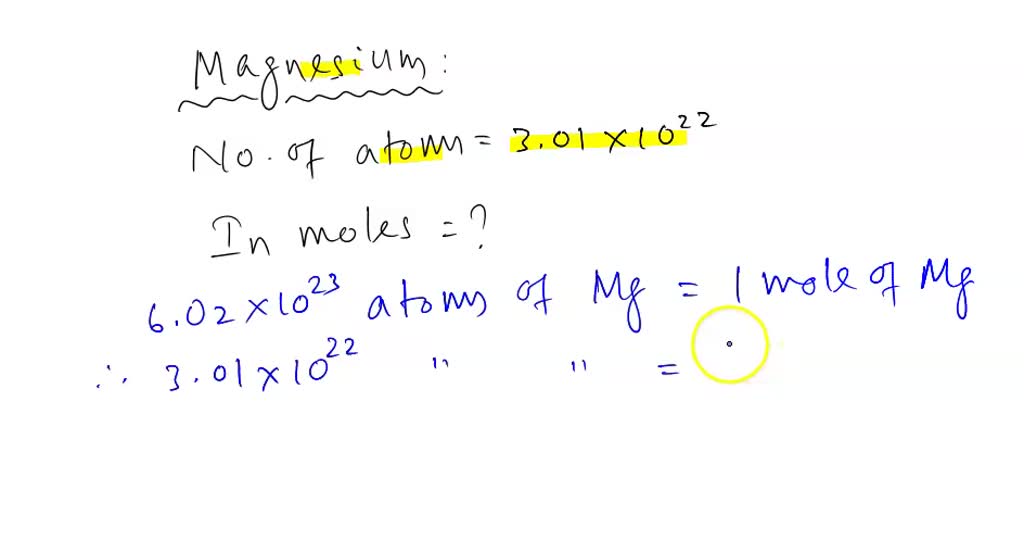 Magnesium:
No. of atoms = 3.01 × 10²²
In moles = ?
6.02 × 10²³ atoms of Mg = 1 mole of Mg
∴ 3.01 × 10²² " " =